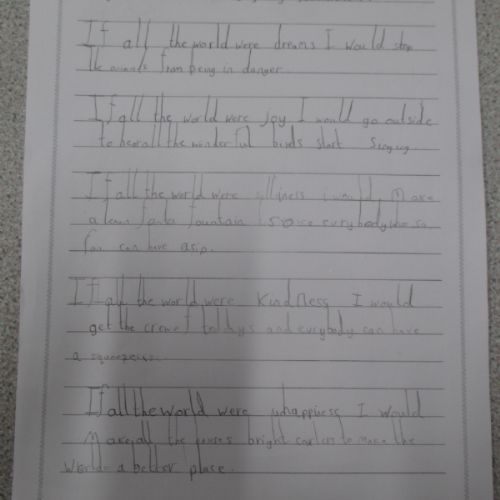 If all the world were dreams I would stop
the animals from being in danger.
If all the world were joy I would go outside
to hear all the wonderful birds start
If all the world were silliness i would Make
a fanta fountain so
can have a sip.
If all the world were Kindness I would
get the teddys and evrybody can have
a
If all the world were I would
Make all the houses bright to make the
World a better place.